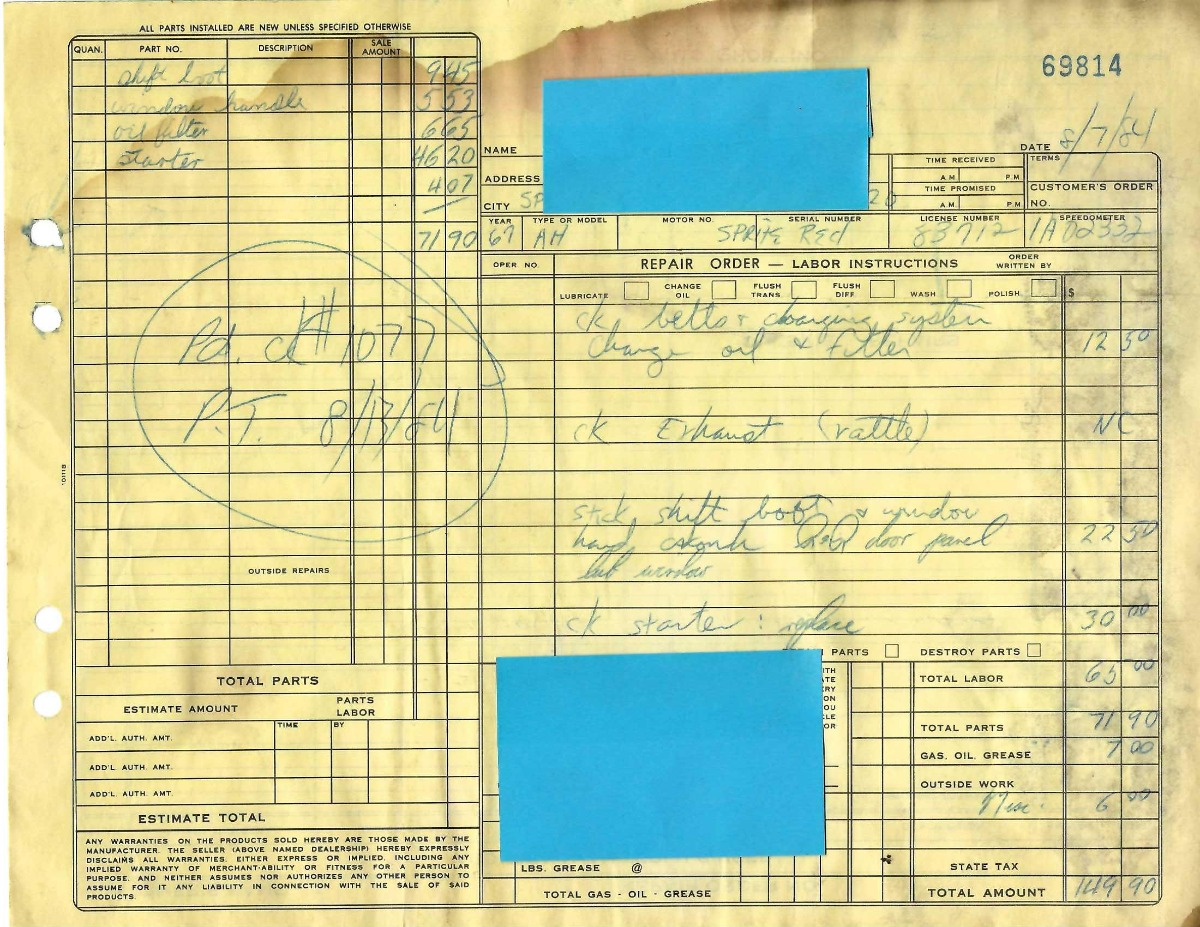 ALL PARTS INSTALLED ARE NEW UNLESS SPECIFIED OTHERWISE
QUAN. PART NO. DESCRIPTION SALE AMOUNT
shift boot 9 45
window handle 5 53
oil filter 6 65
starter 46 20
4 07
71 90
69814
DATE 8/7/84
NAME
ADDRESS
CITY SP 20
TIME RECEIVED A.M. P.M.
TIME PROMISED A.M. P.M.
TERMS
CUSTOMER'S ORDER NO.
YEAR TYPE OR MODEL MOTOR NO. SERIAL NUMBER LICENSE NUMBER SPEEDOMETER
67 AH SPRITE Red 83712
OPER NO. REPAIR ORDER — LABOR INSTRUCTIONS ORDER WRITTEN BY
LUBRICATE CHANGE OIL FLUSH TRANS. FLUSH DIFF. WASH POLISH $
ck belts & charging system
change oil & filter 12 50
Pd. ck# 1077
P.T. 8/13/84
ck Exhaust (rattle) NC
stick shift boot & window
hand door panel 22 50
window
ck starter : replace 30 00
10118
OUTSIDE REPAIRS
PARTS DESTROY PARTS
TOTAL PARTS
ESTIMATE AMOUNT PARTS LABOR
TIME BY
ADD'L. AUTH. AMT.
ADD'L. AUTH. AMT.
ADD'L. AUTH. AMT.
ESTIMATE TOTAL
ANY WARRANTIES ON THE PRODUCTS SOLD HEREBY ARE THOSE MADE BY THE
MANUFACTURER. THE SELLER (ABOVE NAMED DEALERSHIP) HEREBY EXPRESSLY
DISCLAIMS ALL WARRANTIES, EITHER EXPRESS OR IMPLIED, INCLUDING ANY
IMPLIED WARRANTY OF MERCHANT-ABILITY OR FITNESS FOR A PARTICULAR
PURPOSE, AND NEITHER ASSUMES NOR AUTHORIZES ANY OTHER PERSON TO
ASSUME FOR IT ANY LIABILITY IN CONNECTION WITH THE SALE OF SAID
PRODUCTS.
TOTAL LABOR 65 00
TOTAL PARTS 71 90
GAS, OIL, GREASE 7 00
OUTSIDE WORK
Misc. 6 00
LBS. GREASE @
STATE TAX
TOTAL GAS - OIL - GREASE
TOTAL AMOUNT 149 90